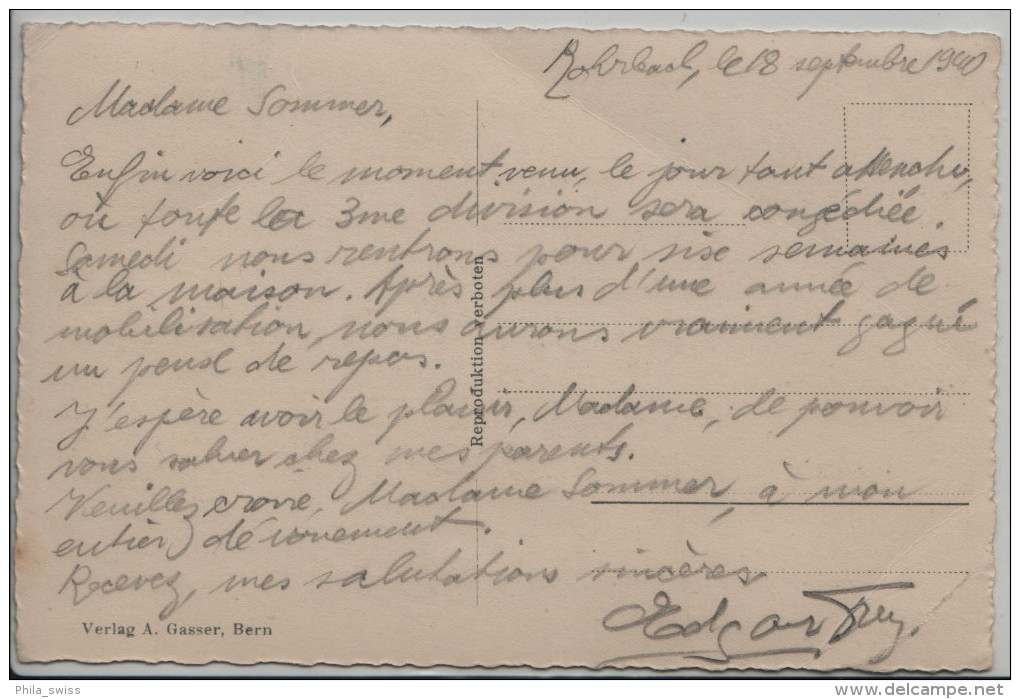 Rohrbach, le 18 septembre 1940
Madame Sommer,
Enfin voici le moment venu, le jour tant attendu,
où toute la 3me division sera congédiée.
Samedi nous rentrons pour six semaines
à la maison. Après plus d'une année de
mobilisation, nous aurons vraiment gagné
un peu de repos.
J'espère avoir le plaisir, Madame, de pouvoir
vous saluer chez mes parents.
Veuillez croire, Madame Sommer, à mon
entier dévouement.
Recevez, mes salutations sincères
Edgar Frey.
Reproduktion verboten
Verlag A. Gasser, Bern
Phila_swiss
www.delcampe.net